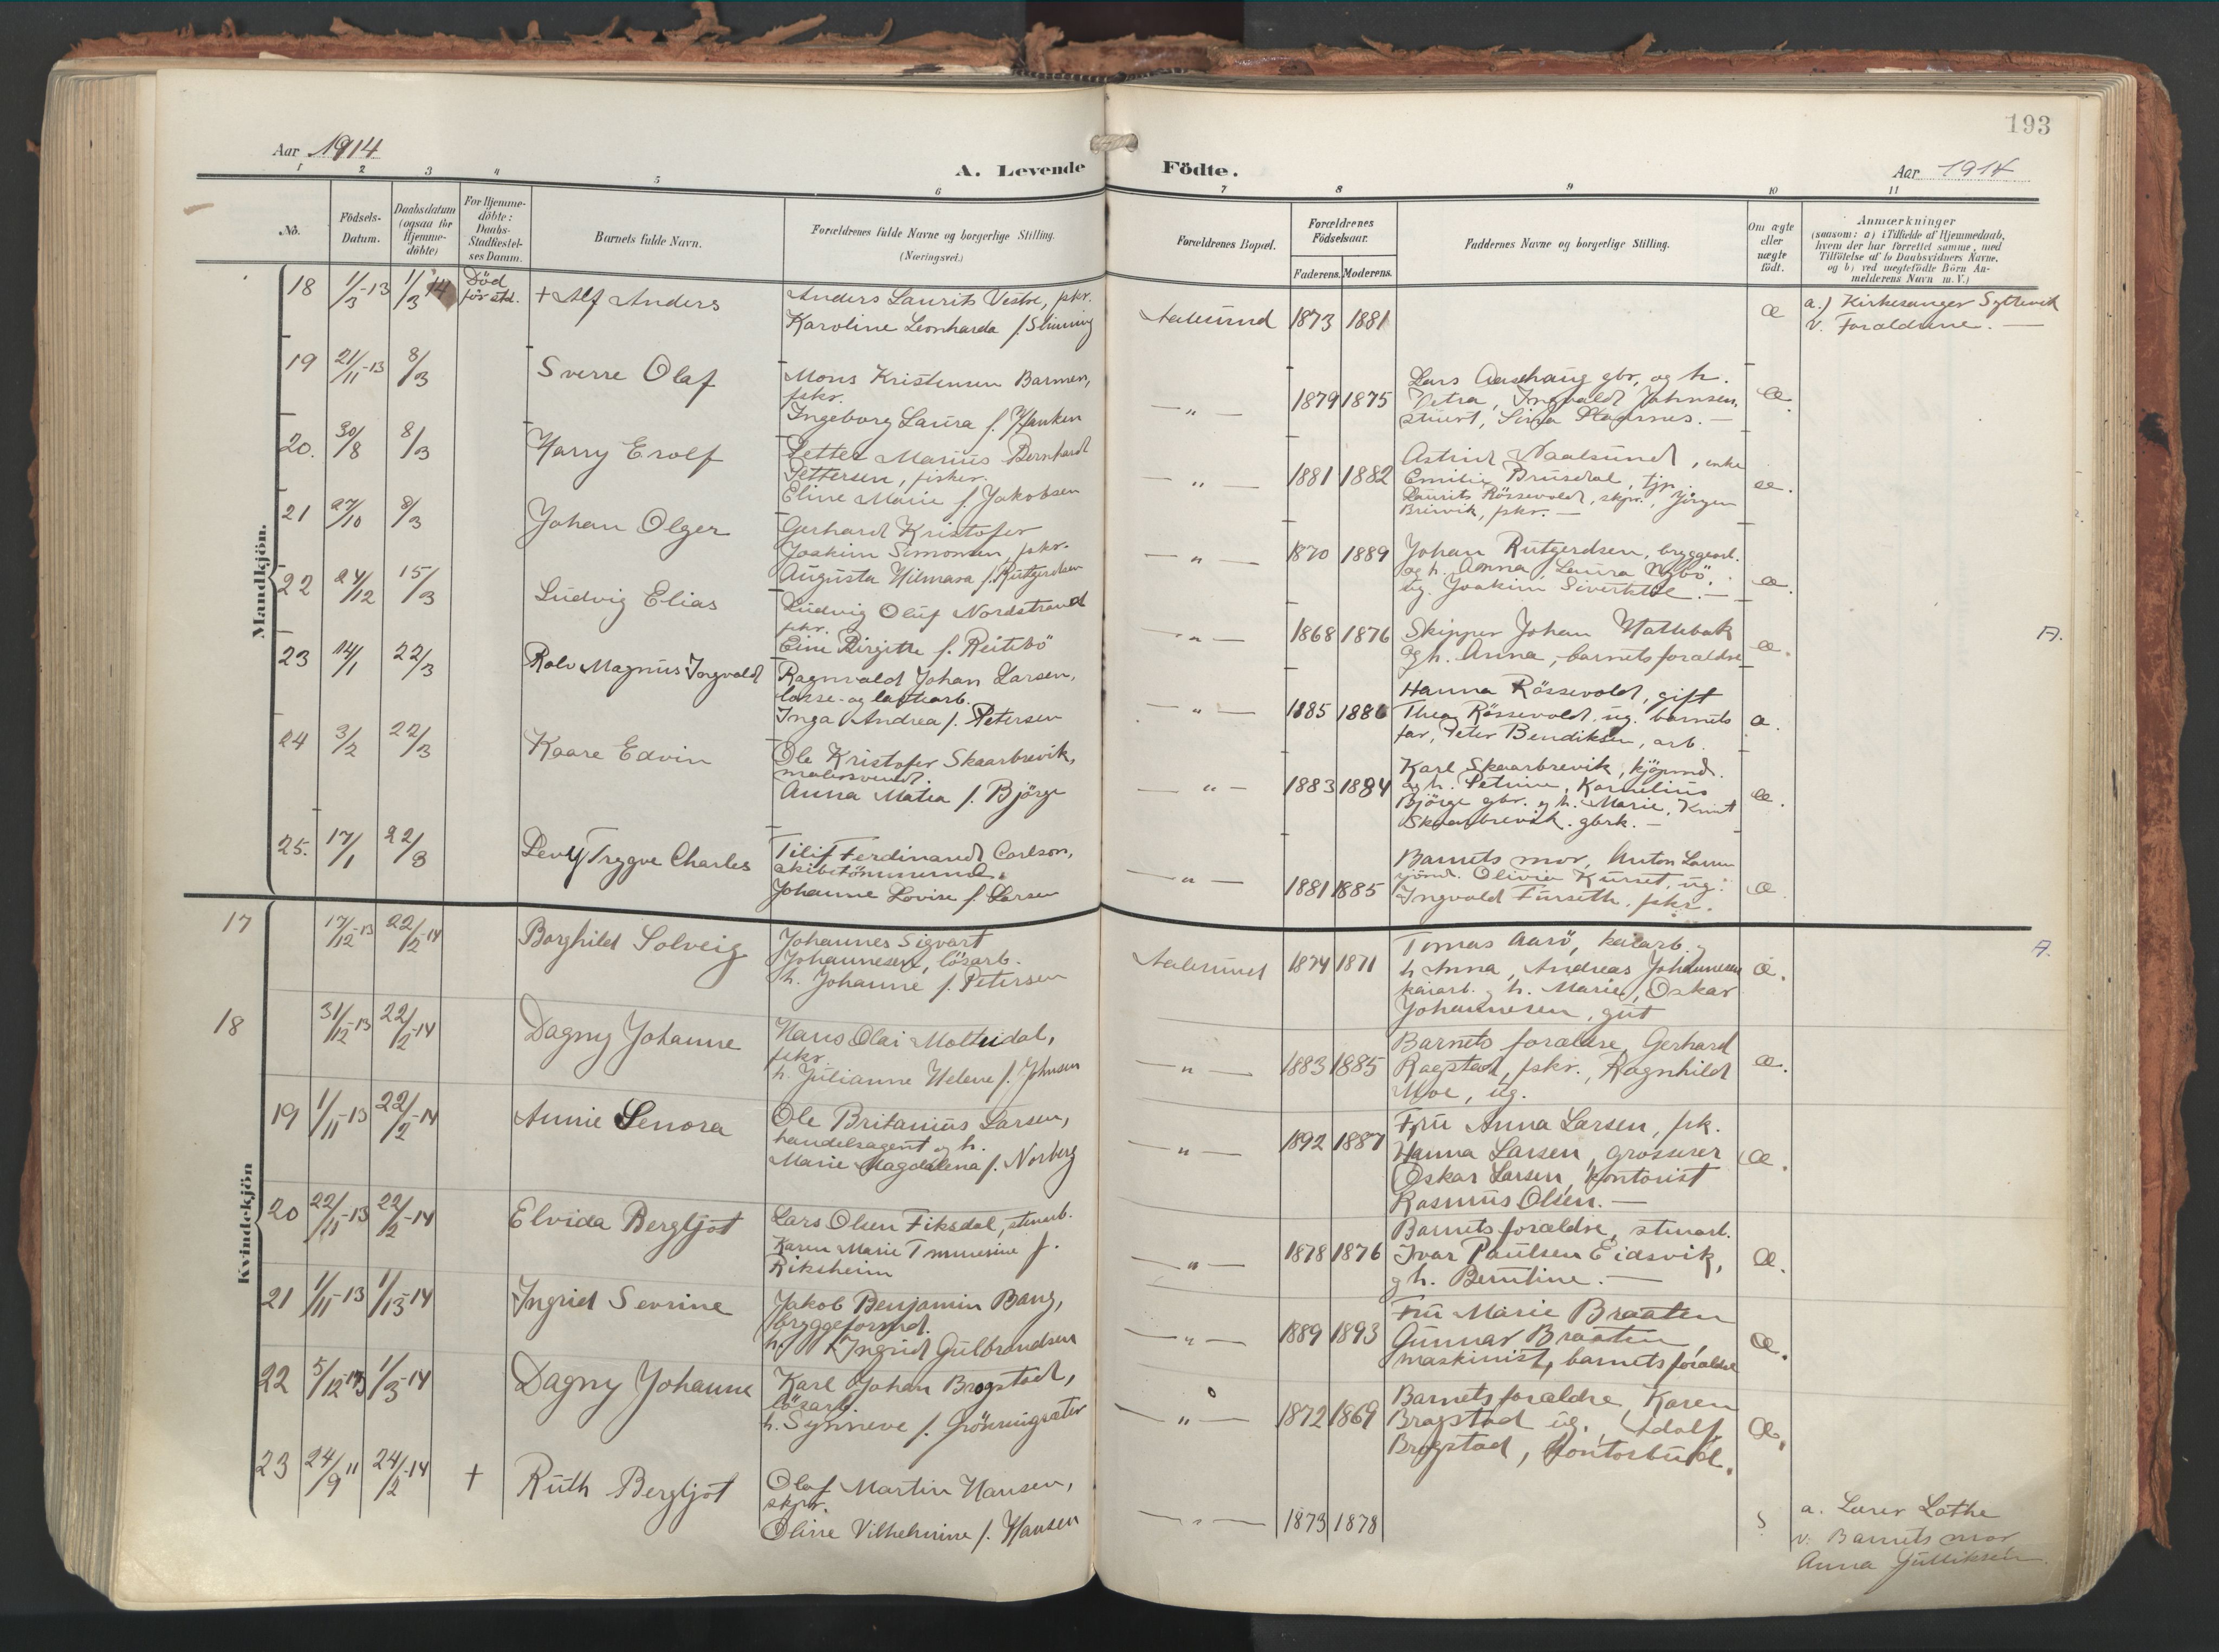 193
Aar 1914
A. Levende Födte.
Aar 1914
1 2 3 4 5 6 7 8 9 10 11
No.
Födsels-Datum.
Daabsdatum (ogsaa for Hjemme-döbte)
For Hjemme-döbte: Daabs-Stadfæstel-ses Datum.
Barnets fulde Navn.
Forældrenes fulde Navne og borgerlige Stilling. (Næringsvei.)
Forældrenes Bopæl.
Forældrenes Födselsaar.
Faderens. Moderens.
Faddernes Navne og borgerlige Stilling.
Om ægte eller uægte födt.
Anmærkninger
(saasom: a) i Tilfælde af Hjemmedaab,
hvem der har forrettet samme, med
Tilföielse af to Daabsvidners Navne.
og b) ved uægtefödte Börn An-
melderens Navn m. V.)
Mandkjön.
18 1/3-13 1/3 14 Död för std. + Alf Anders
Anders Laurits Vestre, fskr.
Karoline Leonharda f. Slinning
Aalesund 1873 1881 æ
a.) Kirkesanger Syltevik
v. Forældrene. —
19 21/11-13 8/3 Sverre Olaf
Mons Kristensen Barmen,
fskr.
Ingeborg Laura f. Hanken
— " — 1879 1875
Lars Aarskaug gbr, og h.
Petra, Ingvald Johnsen,
stuert, Sina —
æ.
20. 30/8 8/3 Harry Erolf
Petter Marius Bernhard
Pettersen, fisker.
Eline Marie f. Jakobsen
— " — 1881 1882
Astrid Vaalsund, enke
Emilie Brusdal, tjp.
Laurits Rössevold, skpr., Jörgen
Breivik, fskr. —
æ.
21 27/10 8/3 Johan Olger
Gerhard Kristofer
Joakim Simonsen, fskr.
Augusta Hilmara f. Rutgerdsen
— " — 1870 1889
Johan Rutgerdsen, bryggearb.
og h. Anna, Laura Nybö,
ug. Joakim —
æ.
22 24/12 15/3 Ludvig Elias
Ludvig Oluf Nordstrand
fskr.
Eine Birgitte f. Reitebö
— " — 1868 1876
Skipper Johan Hattebak
og h. Anna, barnets forældre
æ. A.
23 14/1 22/3 Rolv Magnus Ingvald
Ragnvald Johan Larsen,
losse- og lastearb.
Inga Andrea f. Petersen
— " — 1885 1886
Hanna Rössevold, gift
Thea Rössevold, ug. barnets
far, Peter Bendiksen, arb.
æ.
24 3/2 22/3 Kaare Edvin
Ole Kristofer Skaarbrevik,
malersvend.
Anna Matea f. Björge
— " — 1883 1884
Karl Skaarbrevik, kjöpmd.
og h. Petrine, Kornelius
Björge gbr. og h. Marie, Knut
Skaarbrevik. gbrk. —
æ.
25. 17/1 22/3 Levy Trygve Charles
Tilif Ferdinand Carlson,
skibstömmermd.
Johanne Lovise f. Larsen
— " — 1881 1885
Barnets mor, Anton Larsen
sjömd. Olivia Kurset, ug.
Ingvald Furseth, fskr.
æ
Kvindekjön
17 17/12-13 22/2-14 Borghild Solveig
Johannes Sigvart
Johannesen, lösarb.
h. Johanne f. Petersen
Aalesund 1874 1871
Tomas Aarö, kaiarb. og
h Anna, Andreas Johannesen
kaiarb. og h. Marie, Oskar
Johannesen, gut
æ. A.
18 31/12-13 22/2-14 Dagny Johanne
Hans Olai Molteidal,
fskr.
h. Julianne Helene f. Johnsen
— " — 1883 1885
Barnets forældre, Gerhard
Ragstad, fskr., Ragnhild
Moe, ug.
æ.
19 1/11-13 22/2-14 Annie Senora
Ole Britanius Larsen,
handelsagent og h.
Marie Magdalena f. Norberg
— " — 1892 1887
Fru Anna Larsen, frk.
Hanna Larsen, grosserer
Oskar Larsen, kontorist
Rasmus Olsen. —
æ.
20 22/11-13 22/2-14 Elvida Bergljot
Lars Olsen Fiksdal, stenarb.
Karen Marie f.
Riksheim
— " — 1878 1876
Barnets forældre, stenarb.
Ivar Paulsen Eidsvik,
og h. Berntine. —
æ.
21 1/11-13 1/13-14 Ingrid Sevrine
Jakob Benjamin Bang,
bryggeformd.
h. Ingrid Gulbrandsen
— " — 1889 1893
Fru Marie Braaten
Gunnar Braaten
maskinist, barnets forældre
æ.
22 5/12-13 1/3-14 Dagny Johanne
Karl Johan Brogstad,
lösarb.
h. Synneve f. Grönningsæter
— " — 1872 1869
Barnets forældre, Karen
Brogstad ug. Adolf
Brogstad, kontorbud.
æ.
23 24/9 11 24/2-14 + Ruth Bergljot
Olaf Martin Hansen,
skpr.
Oline Vilhelmine f. Hansen
— " — 1873 1878
a. Lærer Lothe
v. Barnets mor
Anna Gulliksen.